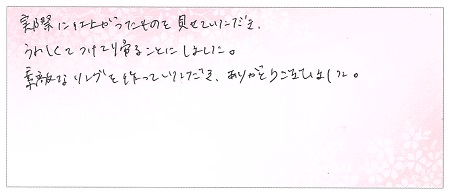 実際に仕上がったものを見せていただき、
うれしくてつけて帰ることにしました。
素敵なリングを作っていただき、ありがとうございました。